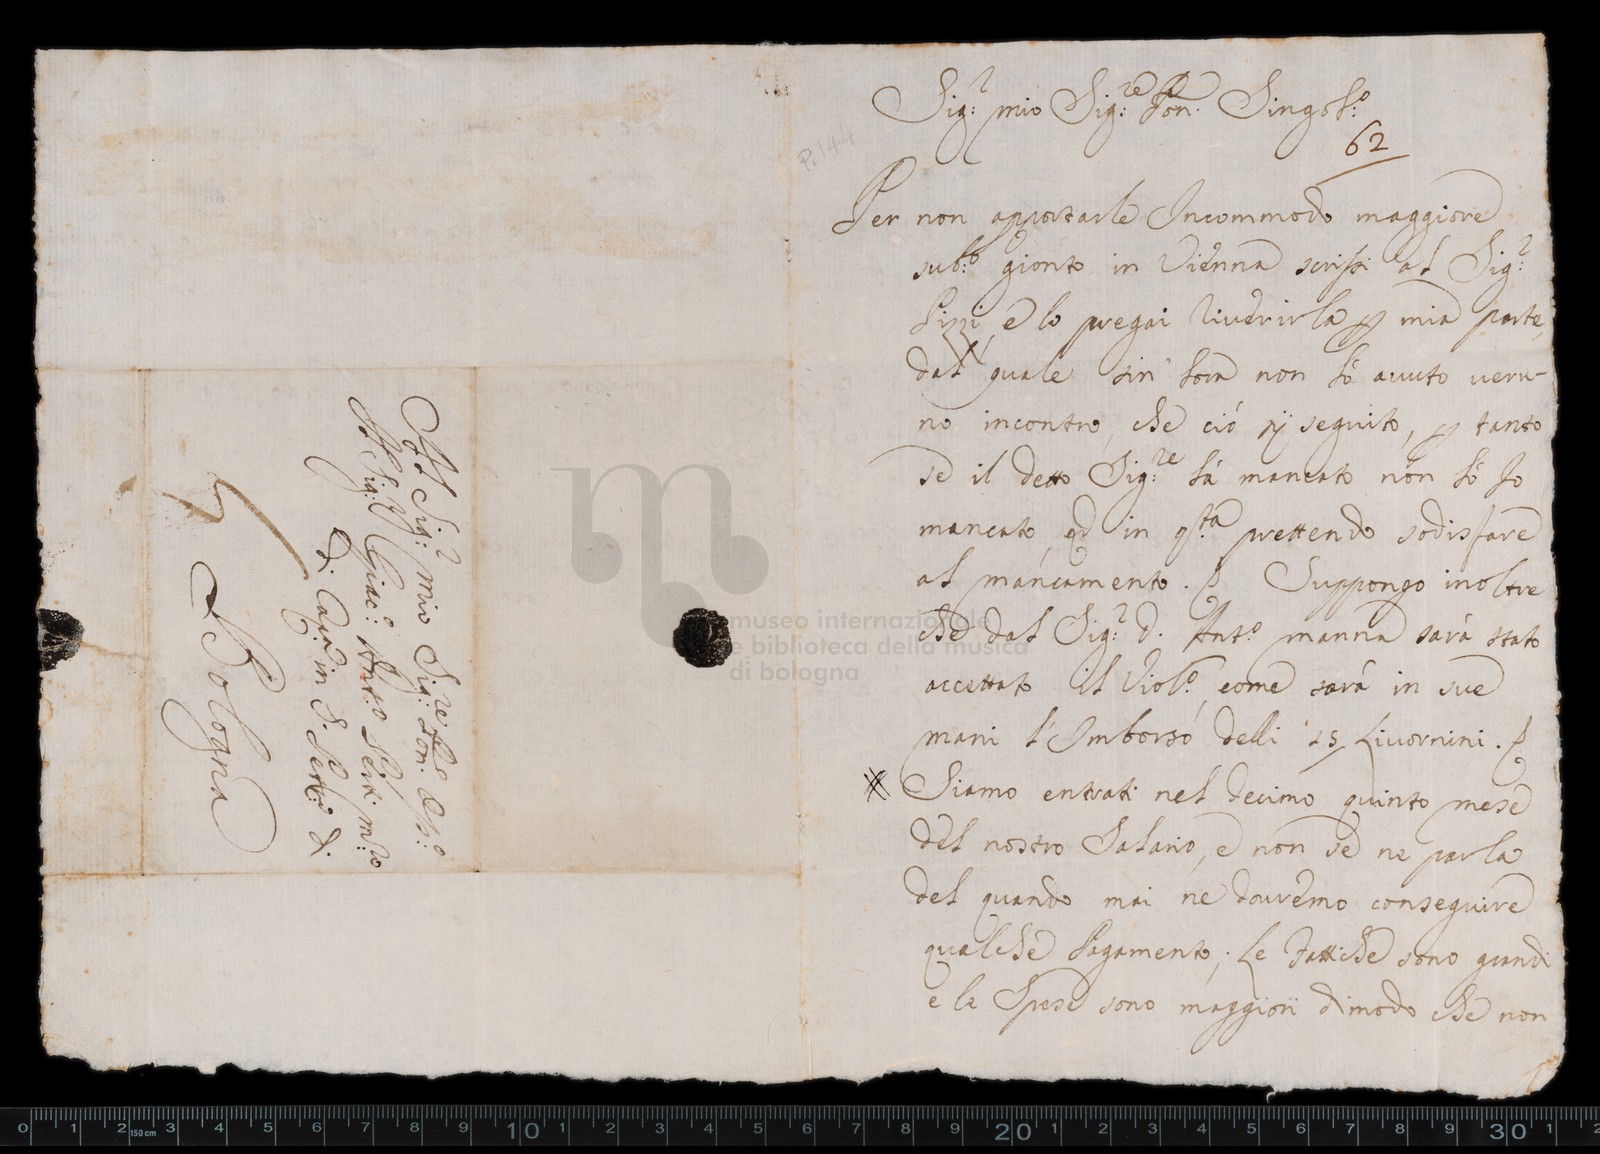 Sig:r mio Sig:re Pon: Singol:o
62
P. 144
Per non apportarle Incommodo maggiore
sub:o gionto in Vienna scrissi al Sig:r
e lo pregai riverirla p mia parte,
dal quale sin hora non hò avuto veru-
no incontro, che ciò sij seguito, p tanto
se il detto Sig:re hà mancato non hò Jo
mancato, et in q.sta prettendo sodisfare
al mancamento. Suppongo inoltre
che dal Sig:r D. Ant:o manna sarà stato
accettato il Viol:o, come sarà in sue
mani l'Imborsò delli 15 Livornini.
Siamo entrati nel decimo quinto mese
del nostro Salario, e non se ne parla
del quando mai ne dovremo conseguire
qualche Pagamento; Le Fattiche sono grandi
e le Spese sono maggiori dimodo che non
All Sig:r mio Sig:re Pon:
Il Sig:r Giac: Ant:o Perti m:ro
d. Cap: in S. d.
Bologna
museo internazionale
e biblioteca della musica
di bologna
0 1 2 3 4 5 6 7 8 9 10 1 2 3 4 5 6 7 8 9 20 1 2 3 4 5 6 7 8 9 30 1 2
150 cm